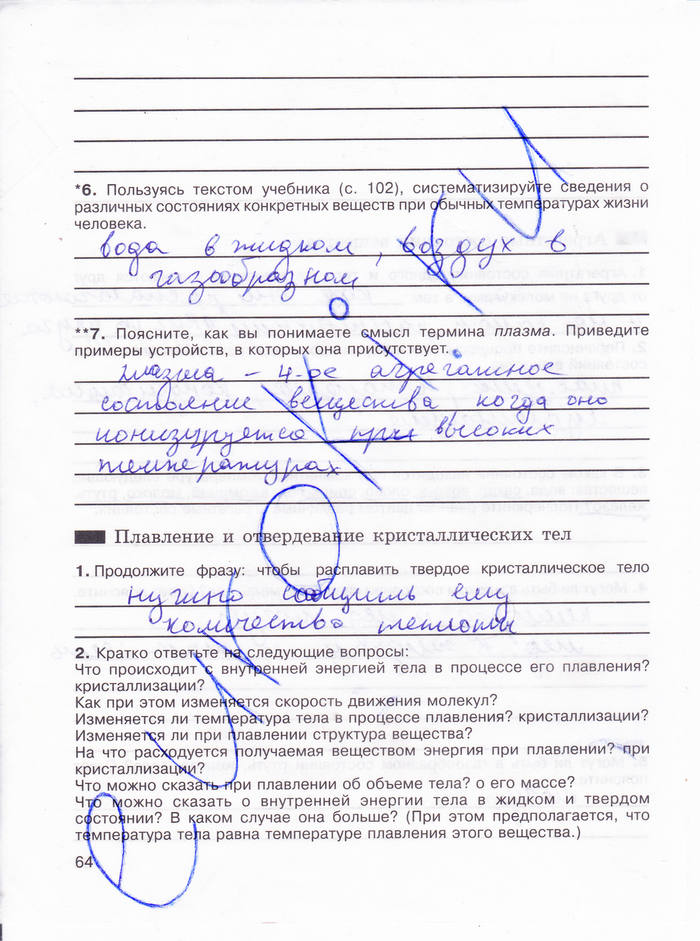 *6. Пользуясь текстом учебника (с. 102), систематизируйте сведения о
различных состояниях конкретных веществ при обычных температурах жизни
человека.
вода в жидком, воздух в
газообразном
**7. Поясните, как вы понимаете смысл термина плазма. Приведите
примеры устройств, в которых она присутствует.
плазма – 4-ое агрегатное
состояние вещества, когда оно
ионизуруется при высоких
температурах
Плавление и отвердевание кристаллических тел
1. Продолжите фразу: чтобы расплавить твердое кристаллическое тело
нужно сообщить ему
количества теплоты
2. Кратко ответьте на следующие вопросы:
Что происходит с внутренней энергией тела в процессе его плавления?
кристаллизации?
Как при этом изменяется скорость движения молекул?
Изменяется ли температура тела в процессе плавления? кристаллизации?
Изменяется ли при плавлении структура вещества?
На что расходуется получаемая веществом энергия при плавлении? при
кристаллизации?
Что можно сказать при плавлении об объеме тела? о его массе?
Что можно сказать о внутренней энергии тела в жидком и твердом
состоянии? В каком случае она больше? (При этом предполагается, что
температура тела равна температуре плавления этого вещества.)
64